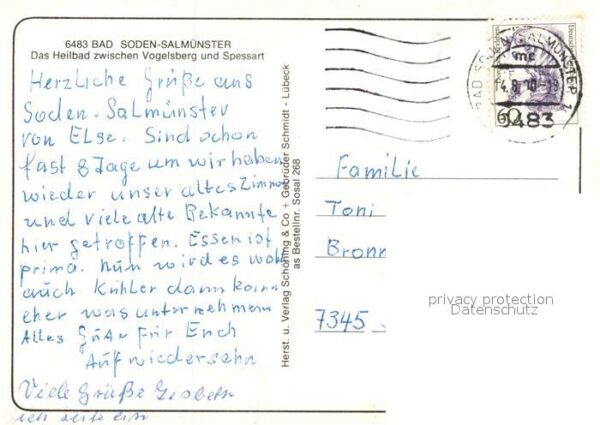 6483 BAD SODEN-SALMÜNSTER
Das Heilbad zwischen Vogelsberg und Spessart
Herzliche Grüße aus
Soden. Salmünster
von Else. Sind schon
fast 8 Tage um wir haben
wieder unser altes Zimmer
und viele alte Bekannte
hier getroffen. Essen ist
prima. Nun wird es wohl
auch Kühler dann kann
eher was unternehmen
Alles für Euch
Aufwiedersehn
Viele Grüße
Herst. u. Verlag Schöning & Co + Gebrüder Schmidt - Lübeck
als Bestellnr. Sosal 268
60
6483
Familie
Toni
Bronn
7345
privacy protection
Datenschutz